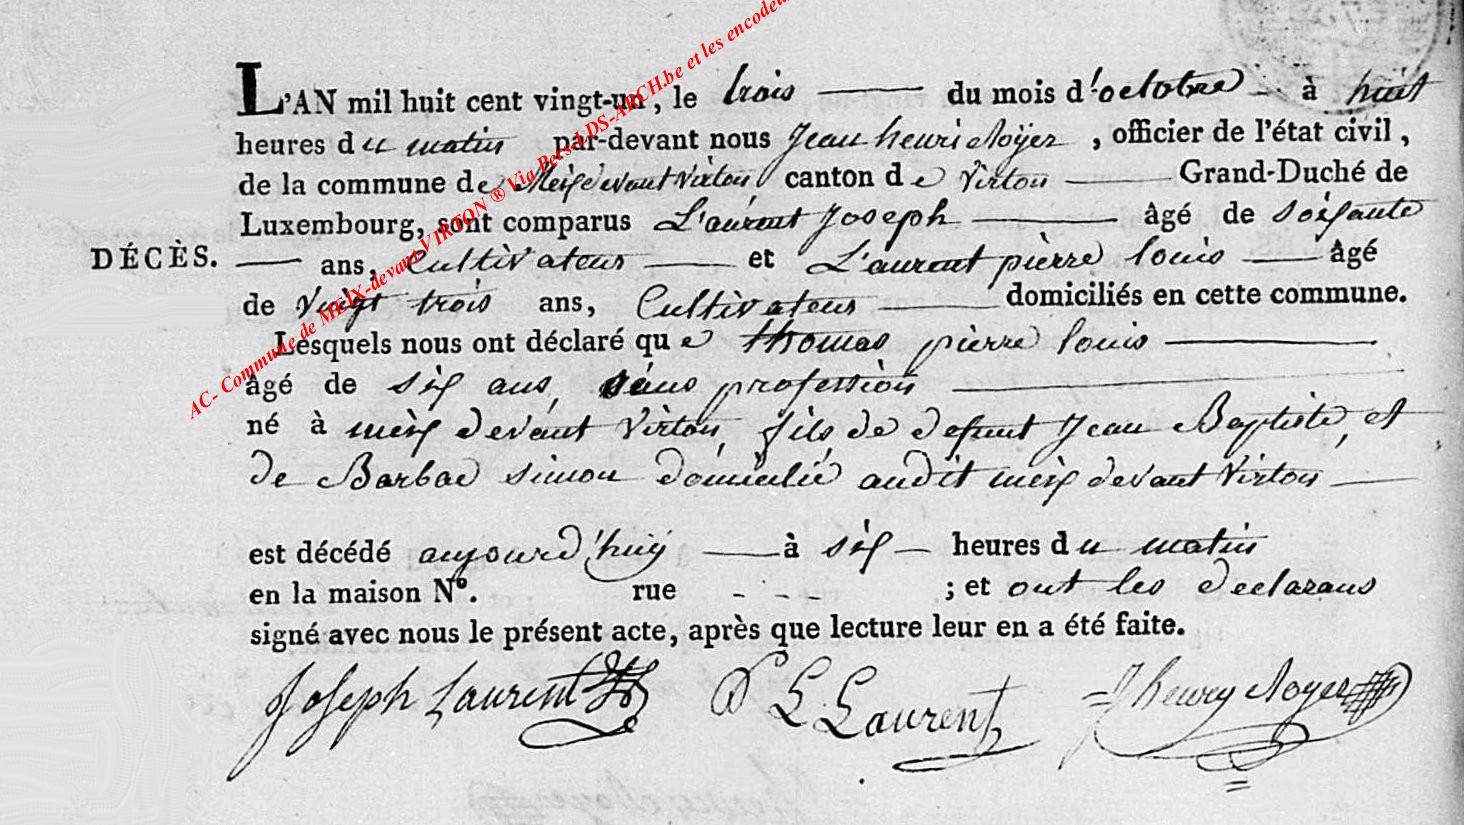 L'AN mil huit cent vingt-un, le trois du mois d'octobre à huit
heures du matin par-devant nous Jean henri Noÿer, officier de l'état civil,
de la commune de Meix devant Virton canton de Virton Grand-Duché de
Luxembourg, sont comparus L'aurent Joseph âgé de soixante
DÉCÈS. ans, Cultivateur et L'aurent pierre louis âgé
de Vingt trois ans, Cultivateur domiciliés en cette commune.
Lesquels nous ont déclaré que thomas pierre louis
âgé de six ans, sans profession
né à meix devant Virton, fils de defunt Jean Baptiste, et
de Barbae simon domicilié audit meix devant Virton
est décédé aujourd'huÿ à six heures du matin
en la maison N°. rue - - - ; et ont les declarans
signé avec nous le présent acte, après que lecture leur en a été faite.
Joseph Laurent P L Laurent J henry Noyer
AC- Commune de MEIX-devant-VIRTON ® Via Pers-LDS-ARCH.be et les encodeu